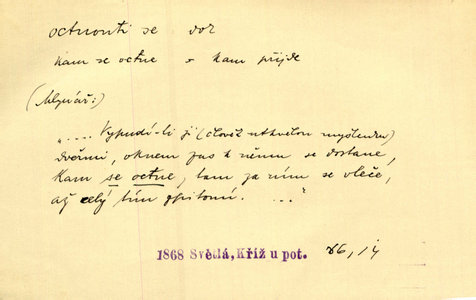 octnouti se dok
kam se octne = kam přijde
(Mlynář:)
".... Vypudí-li ji (člověk utkvělou myšlenku)
dveřmi, oknem zas k němu se dostane,
kam se octne, tam za ním se vleče,
až celý tím zpitomí. ...."
1868 Světlá, Kříž u pot. 86, 14